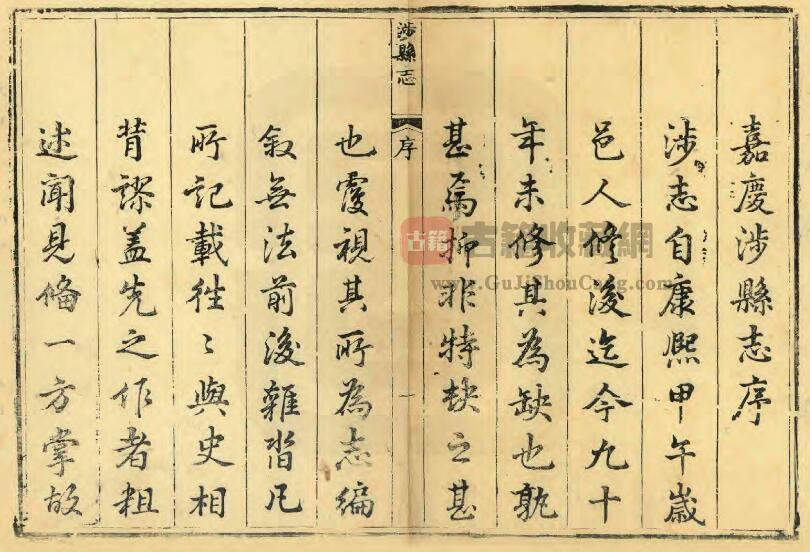 嘉慶涉縣志序
涉志自康熙甲午歲
邑人修後迄今九十
年未修其為缺也孰
甚焉抑非特缺之甚
涉縣志
序
一
也覆視其所為志編
叙無法前後雜沓凡
所記載往〻與史相
背謬盖先之作者粗
述聞見俻一方掌故
古籍
古籍收藏網
www.GuJiShouCang.com